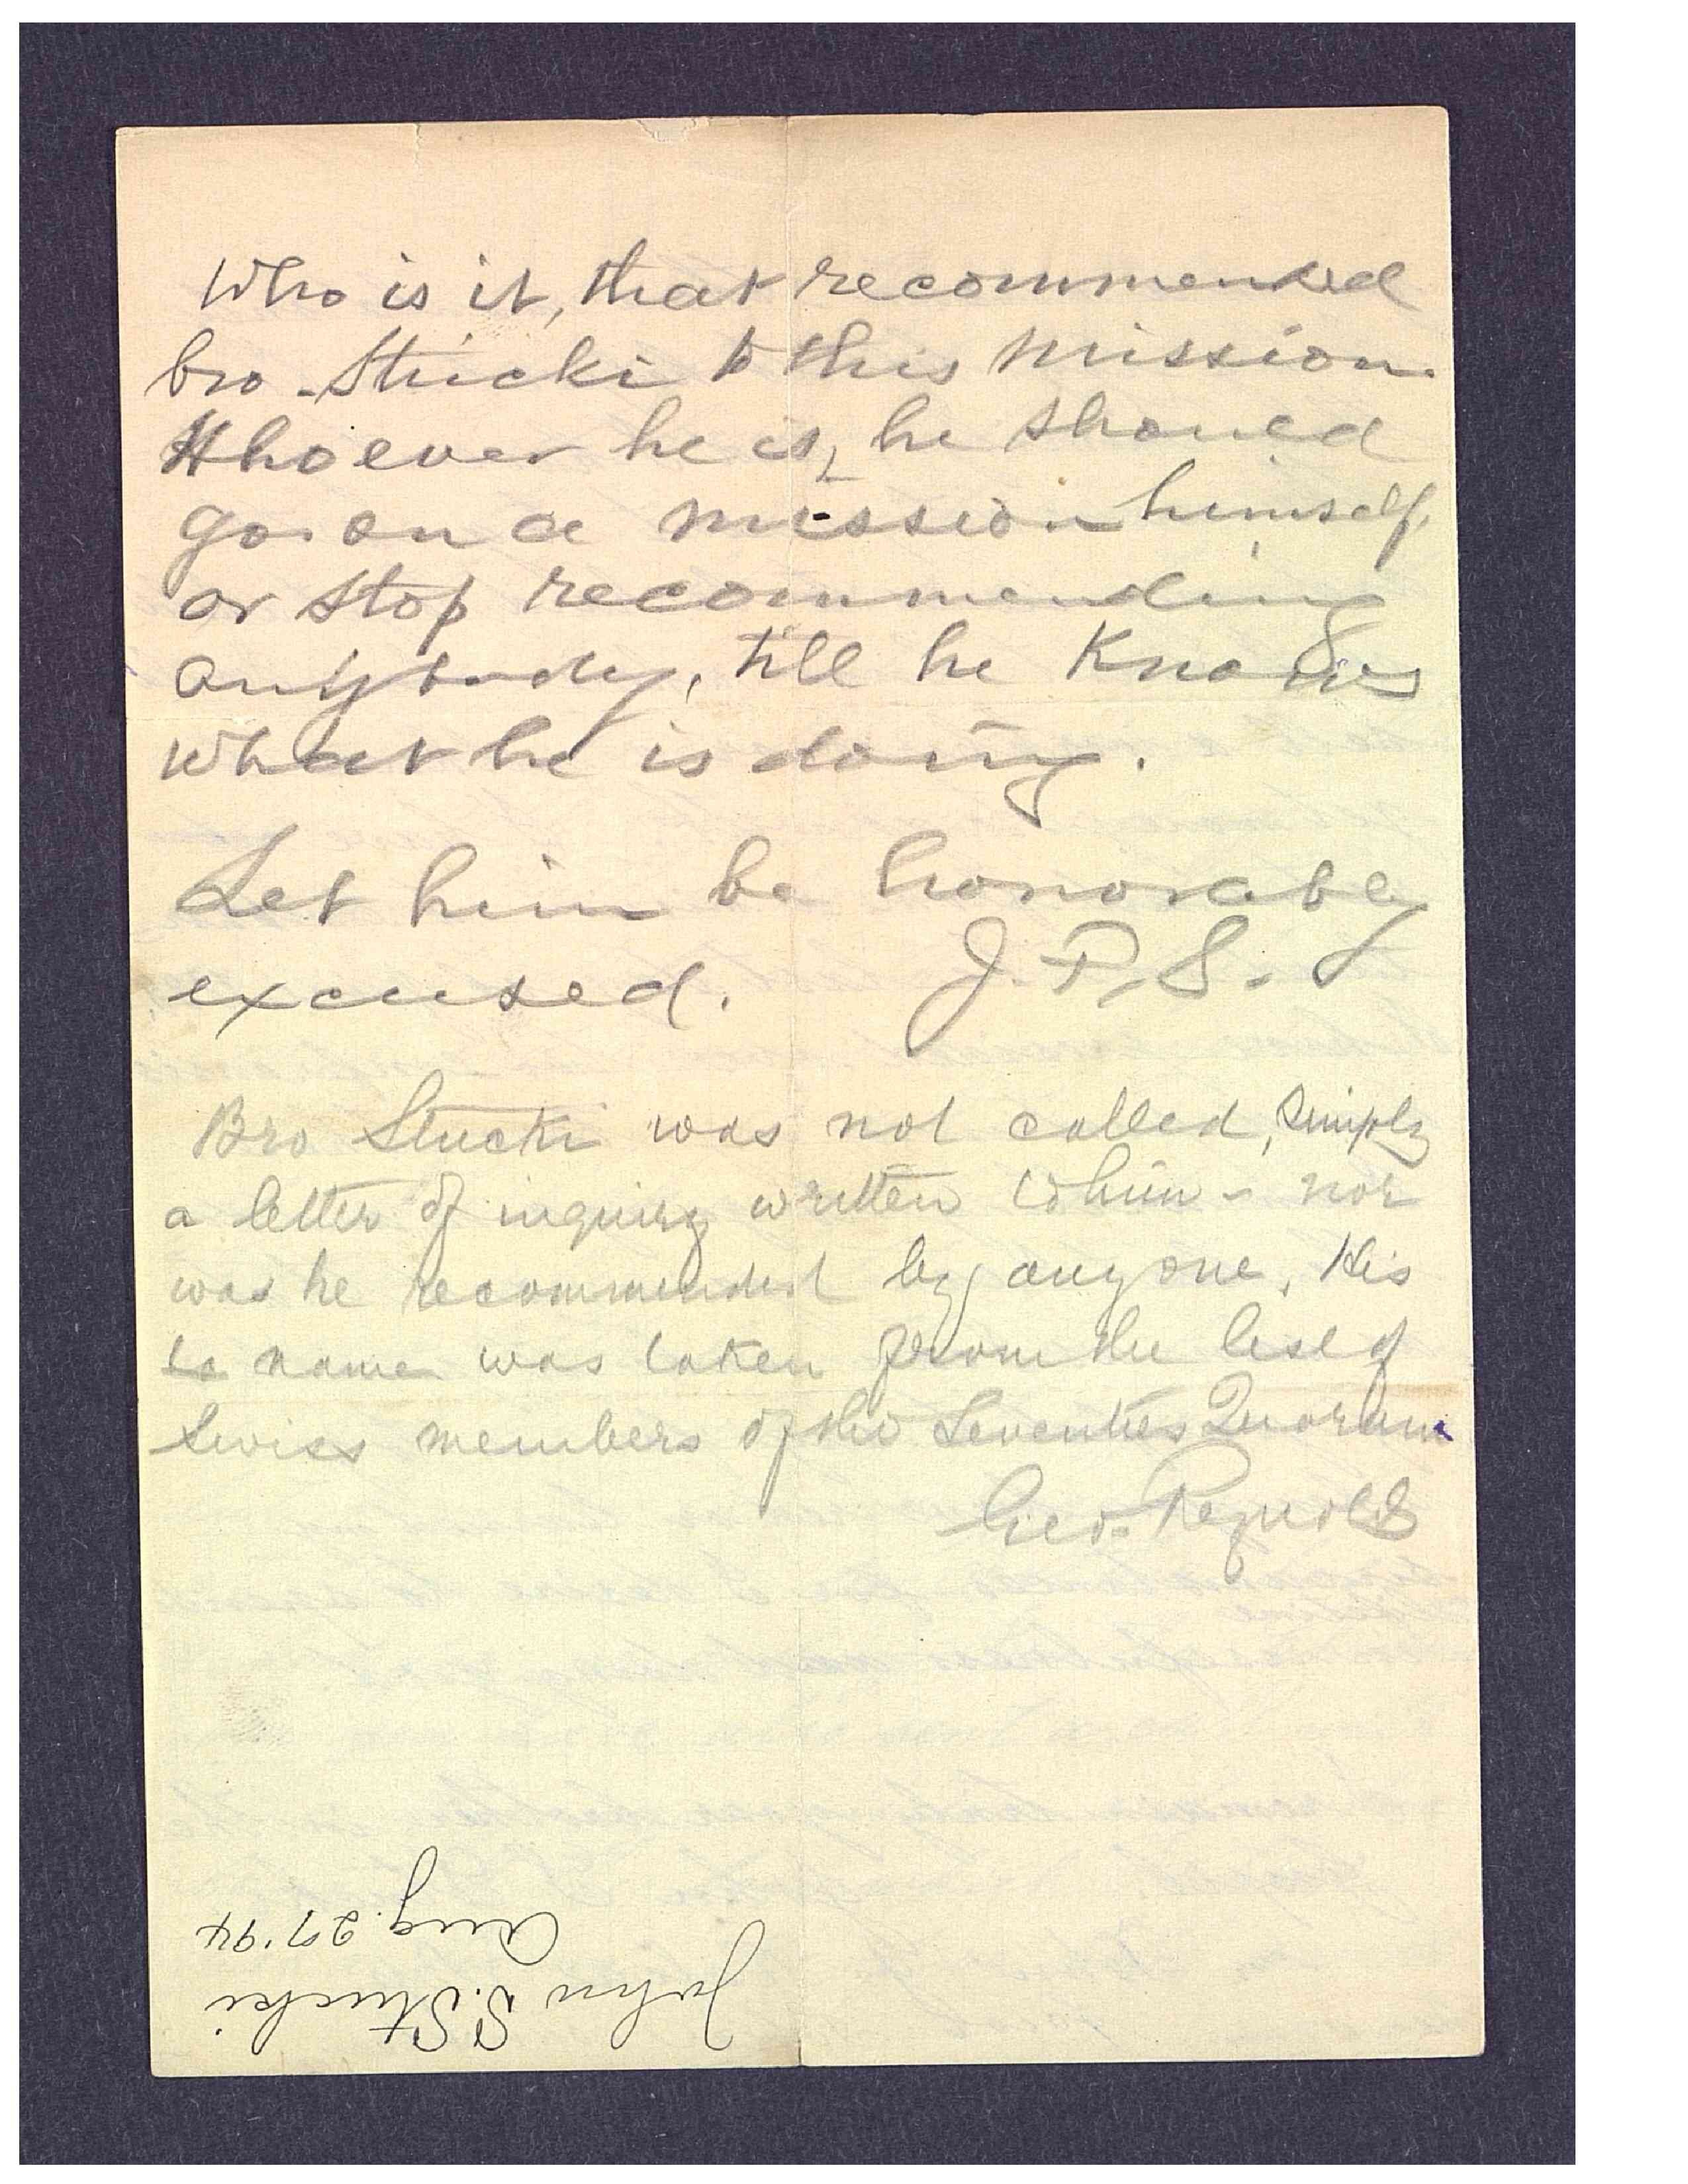 Who is it, that recommended
bro. Stucki to this mission.
Whoever he is, he should
go on a mission himself,
or stop recommending
anybody, till he knows
what he is doing.
Let him be honorably
excused. J. F. S.
Bro Stucki was not called, simply
a letter of inquiry written to him - nor
was he recommended by anyone. His
name was taken from the list of
Swiss members of the Seventies Quorum
Geo. Reynolds
John S. Stucki
Aug. 27 '94